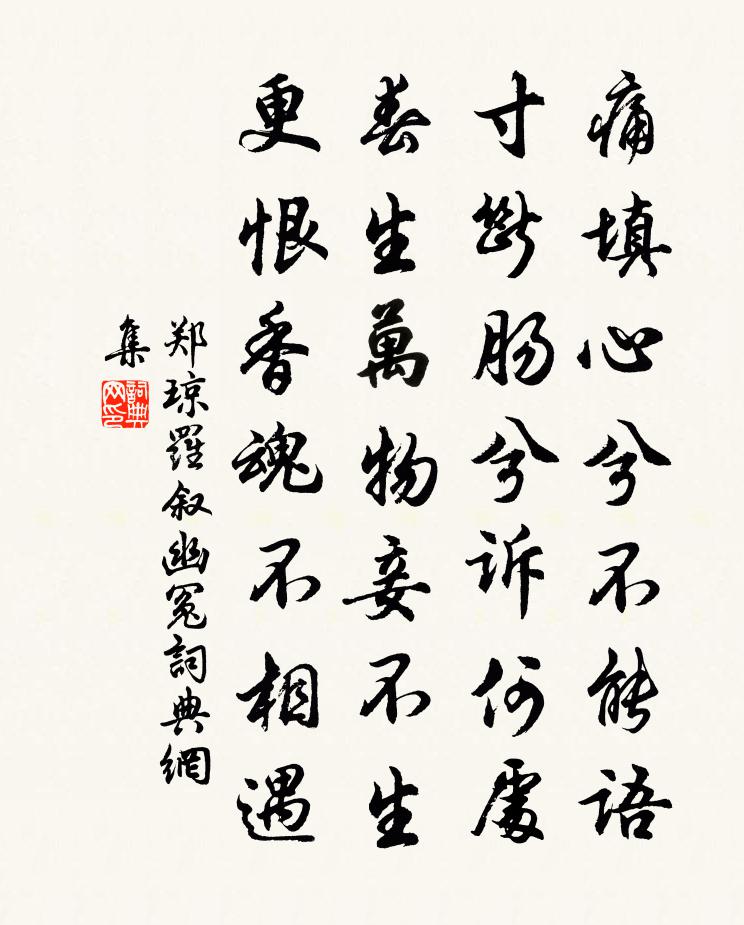 痛填心兮不能语
寸断肠兮诉何處
春生萬物妾不生
更恨香魂不相遇
郑琼羅叙幽冤詞典網
集
詞典
网印